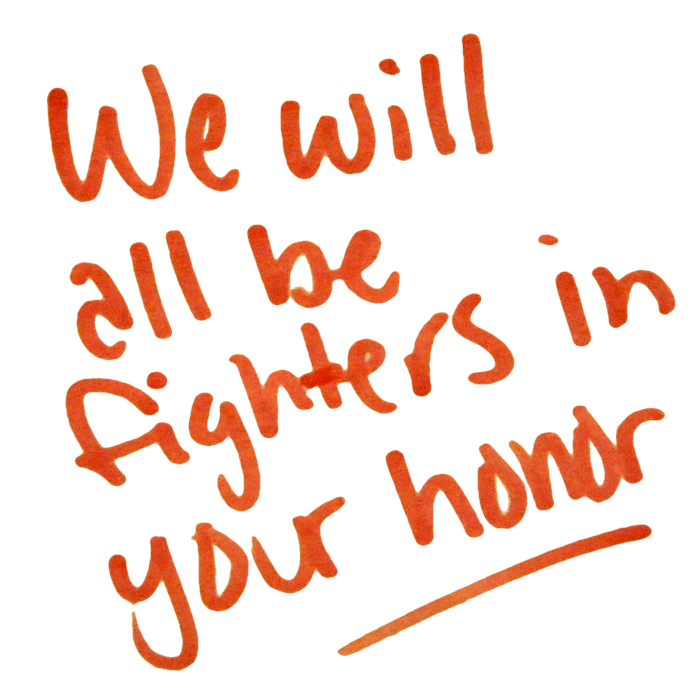 We will
all be
fighters in
your honor